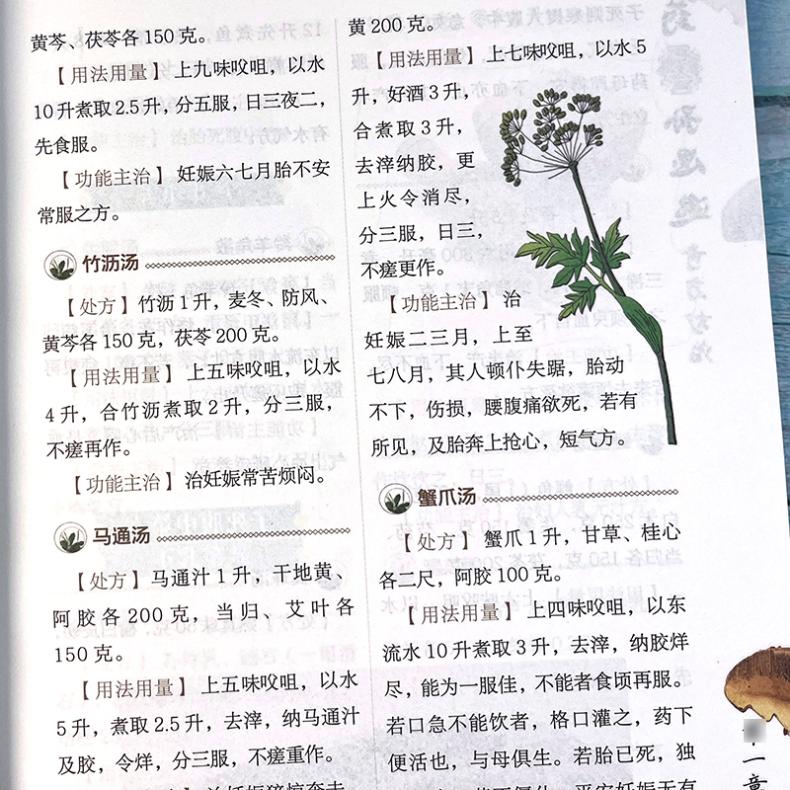 黄芩、茯苓各 150 克。
【用法用量】上九味㕮咀，以水
10 升煮取 2.5 升，分五服，日三夜二，
先食服。
【功能主治】妊娠六七月胎不安
常服之方。
竹沥汤
【处方】竹沥 1 升，麦冬、防风、
黄芩各 150 克，茯苓 200 克。
【用法用量】上五味㕮咀，以水
4 升，合竹沥煮取 2 升，分三服，
不瘥再作。
【功能主治】治妊娠常苦烦闷。
马通汤
【处方】马通汁 1 升，干地黄、
阿胶各 200 克，当归、艾叶各
150 克。
【用法用量】上五味㕮咀，以水
5 升，煮取 2.5 升，去滓，纳马通汁
及胶，令烊，分三服，不瘥重作。
黄 200 克。
【用法用量】上七味㕮咀，以水 5
升，好酒 3 升，
合煮取 3 升，
去滓纳胶，更
上火令消尽，
分三服，日三，
不瘥更作。
【功能主治】治
妊娠二三月，上至
七八月，其人顿仆失踞，胎动
不下，伤损，腰腹痛欲死，若有
所见，及胎奔上抢心，短气方。
蟹爪汤
【处方】蟹爪 1 升，甘草、桂心
各二尺，阿胶 100 克。
【用法用量】上四味㕮咀，以东
流水 10 升煮取 3 升，去滓，纳胶烊
尽，能为一服佳，不能者食顷再服。
若口急不能饮者，格口灌之，药下
便活也，与母俱生。若胎已死，独
一章